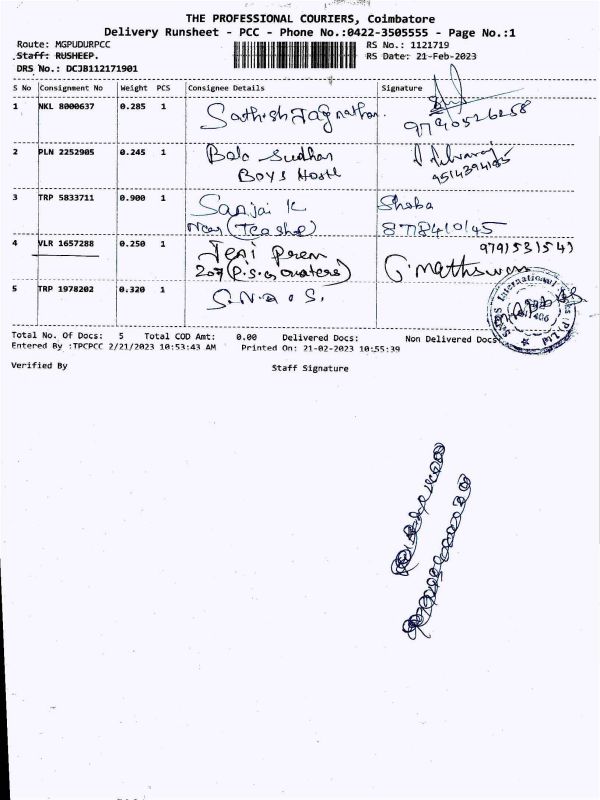 THE PROFESSIONAL COURIERS, Coimbatore
Delivery Runsheet - PCC - Phone No.:0422-3505555 - Page No.:1
Route: MGPUDURPCC
RS No.: 1121719
Staff: RUSHEEP.
RS Date: 21-Feb-2023
DRS No.: DCJB112171901
S No Consignment No Weight PCS Consignee Details Signature
1 NKL 8000637 0.285 1 Sathish Jagnathan
2 PLN 2252905 0.245 1 Bala Sudhan
Boys Hostl
9514394185
3 TRP 5833711 0.900 1 Sanjai K Shoba
Near (Tea shop) 8778410145
4 VLR 1657288 0.250 1 Jeni Prem
207 (P.S.G. Quaters) G. Mathswan
5 TRP 1978202 0.320 1 S.N.Q.S.
Total No. Of Docs: 5 Total COD Amt: 0.00 Delivered Docs: Non Delivered Docs
Entered By :TPCPCC 2/21/2023 10:53:43 AM Printed On: 21-02-2023 10:55:39
Verified By Staff Signature